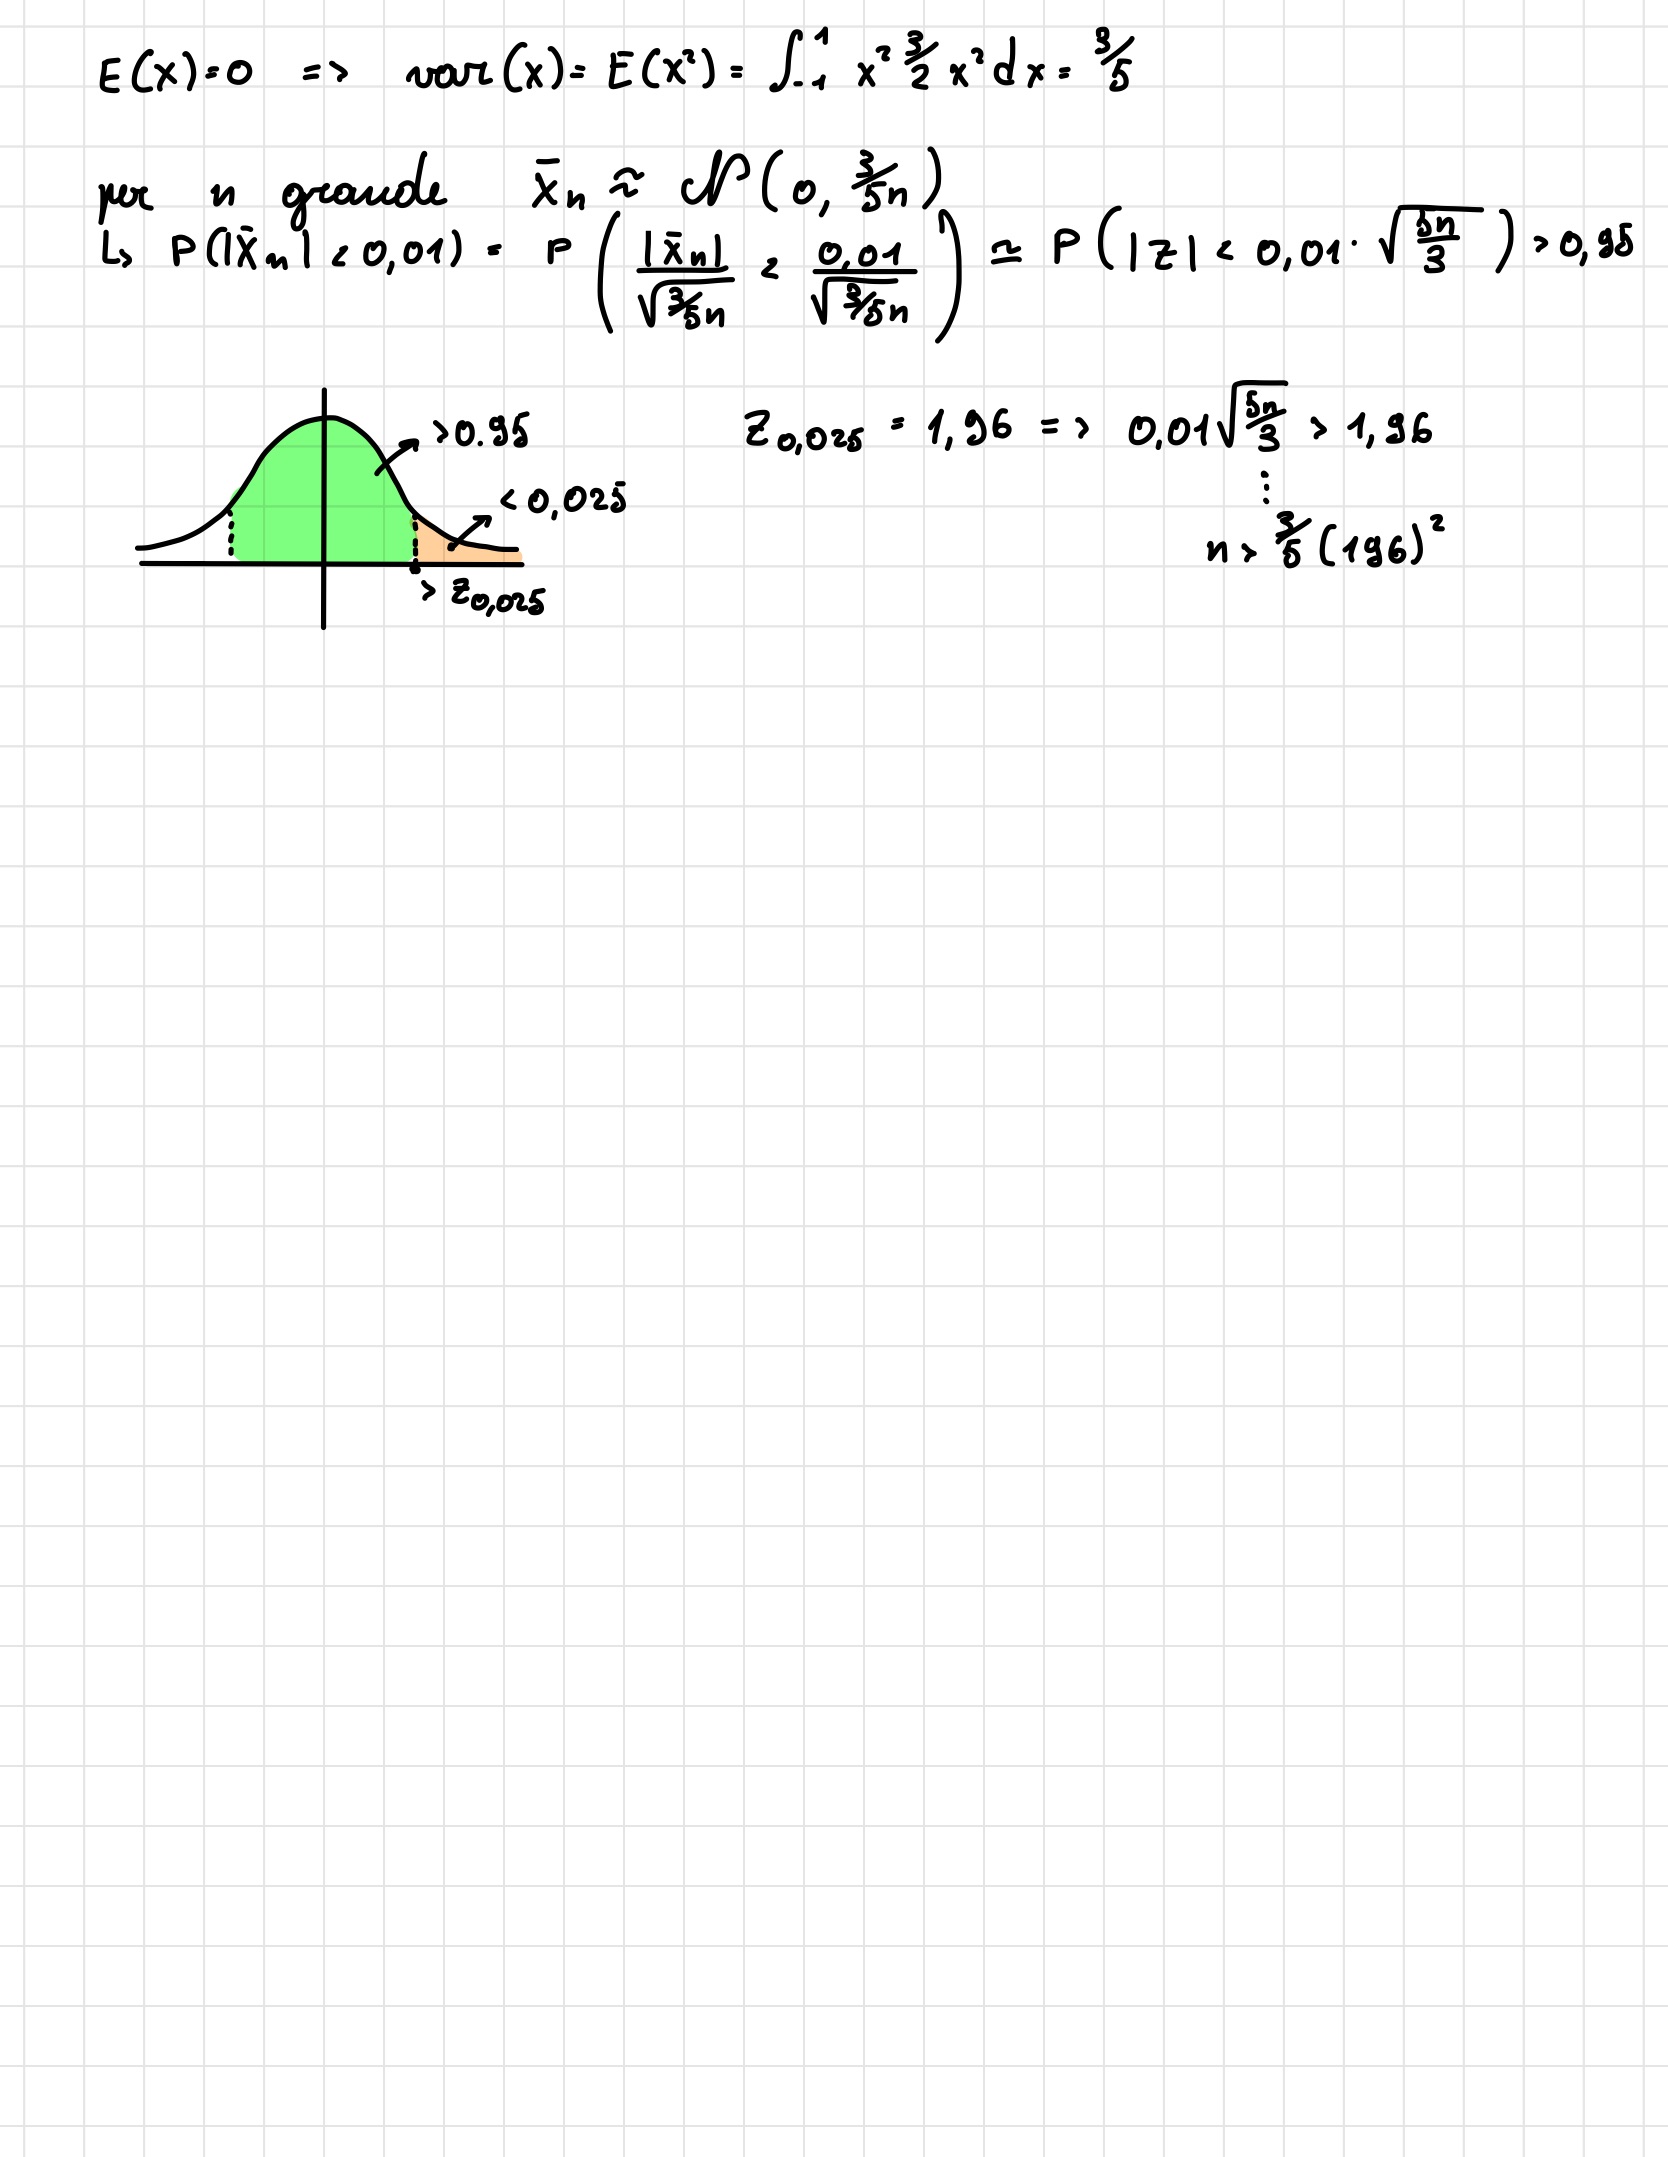 E(X)=0 => var(X)= E(X²)= ∫₋₁¹ x² 3/2 x² dx = 3/5
per n grande X̄n ≈ N(0, 3/5n)
↳ P(|X̄n| < 0,01) = P(|X̄n|/√(3/5n) < 0,01/√(3/5n)) ≃ P(|Z| < 0,01 · √(5n/3)) > 0,95
>0.95
Z0,025 = 1,96 => 0,01√(5n/3) > 1,96
< 0,025
⋮
n > 3/5 (196)²
> Z0,025